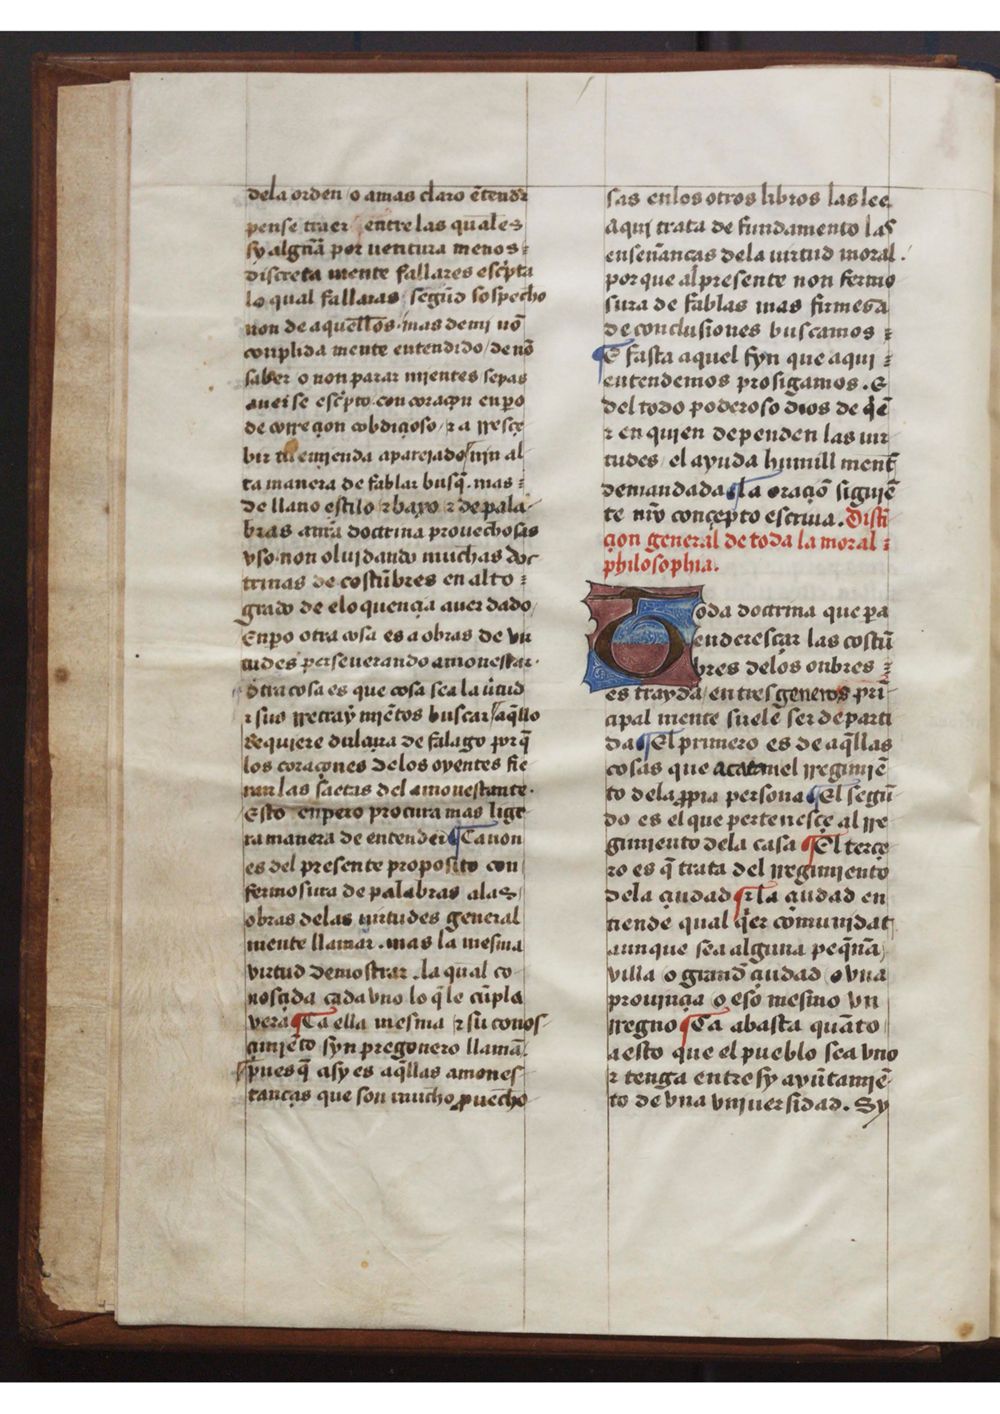 dela orden / o amas claro ẽtendr
pense traer / entre las quales
sy algũa por uentura menos
discreta mente fallares esc̃pta
lo qual fallaras / segũd sospecho
non de aquellos mas de mi nõ
conplida mente entendido / de nõ
saber o non parar mientes sepas
auerse esc̃pto con coraçon enp̃o
de correçion cobdiçoso / ⁊ a rresçe
bir tu emienda aparejado / nin al
ta manera de fablar busq̃. mas
de llano estilo ⁊ baxo ⁊ de pala
bras a mỹa doctrina prouechosas
vso. non oluidando muchas doc
trinas de costũbres en alto
grado de eloquençia auer dado /
Enp̃o otra cosa es a obras de vir
tudes perseuerando amonestar.
otra cosa es que cosa sea la ũtud
⁊ sus rretraymiẽtos buscar / aq̃llo
Requiere dulçura de falago porq̃
los coraçones delos oyentes fie
ran las saetas del amonestante.
Esto enpero procura mas lige
ra manera de entender ¶ Ca non
es del presente proposito con
fermosura de palabras alas
obras delas uirtudes general
mente llamar. mas la mesma
virtud demostrar. la qual co
nosçida cada vno lo q̃ le cũpla
vera ¶ Ca ella mesma ⁊ su conos
çimiẽto syn pregonero llamã.
pues q̃ asy es aq̃llas amones
tanças que son mucho prouecho
sas enlos otros libros las lee.
Aqui trata de fundamento las
enseñanças dela uirtud moral.
por que al presente non fermo
sura de fablas mas firmeza
de conclusiones buscamos
¶ E fasta aquel fyn que aqui
entendemos prosigamos. E
del todo poderoso dios de q̃ẽ
⁊ en quien dependen las uir
tudes / el ayuda humill ment̃
demandada ¶ la oraçõ siguiẽ
te nr̃o conçepto escriua. Distĩ
çion general de toda la moral
philosophia.
Toda doctrina que pa
enderesçar las costũ
bres delos onbres
es trayda / en tres generos prĩ
çipal mente suelẽ ser departi
da ¶ El primero es de aq̃llas
cosas que acatan el rregimiẽ
to dela propia persona ¶ El segũ
do es el que pertenesçe al rre
gimiento dela casa ¶ El terçe
ro es q̃ trata del rregimiento
dela çiudad ¶ ⁊ la çiudad en
tiende qual q̃er comunidat
aunque sea alguna peq̃ña /
villa o grand̃ çiudad / o vna
prouinçia o eso mesmo vn
rregno ¶ Ca abasta quãto
a esto que el pueblo sea vno
⁊ tenga entre sy ayũtamiẽ
to de vna vniuersidad. Sy